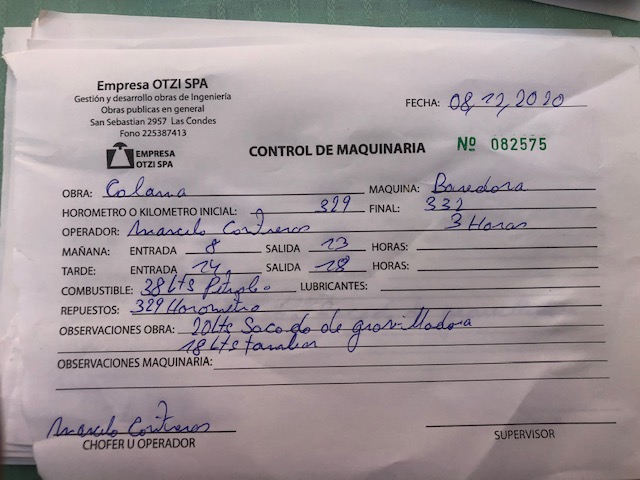 Empresa OTZI SPA
Gestión y desarrollo obras de Ingeniería
Obras publicas en general
San Sebastian 2957 Las Condes
Fono 225387413
FECHA: 08,12,2020
EMPRESA
OTZI SPA
CONTROL DE MAQUINARIA
Nº 082575
OBRA: Calama MAQUINA: Barredora
HOROMETRO O KILOMETRO INICIAL: 329 FINAL: 332
OPERADOR: Marcelo Contreras 3 Horas
MAÑANA: ENTRADA 8 SALIDA 13 HORAS:
TARDE: ENTRADA 14 SALIDA 18 HORAS:
COMBUSTIBLE: 38 Lts Petroleo LUBRICANTES:
REPUESTOS: 329 Horometro
OBSERVACIONES OBRA: 20 Lts Sacado de gravilladora
18 Lts
OBSERVACIONES MAQUINARIA:
Marcelo Contreras
CHOFER U OPERADOR
SUPERVISOR